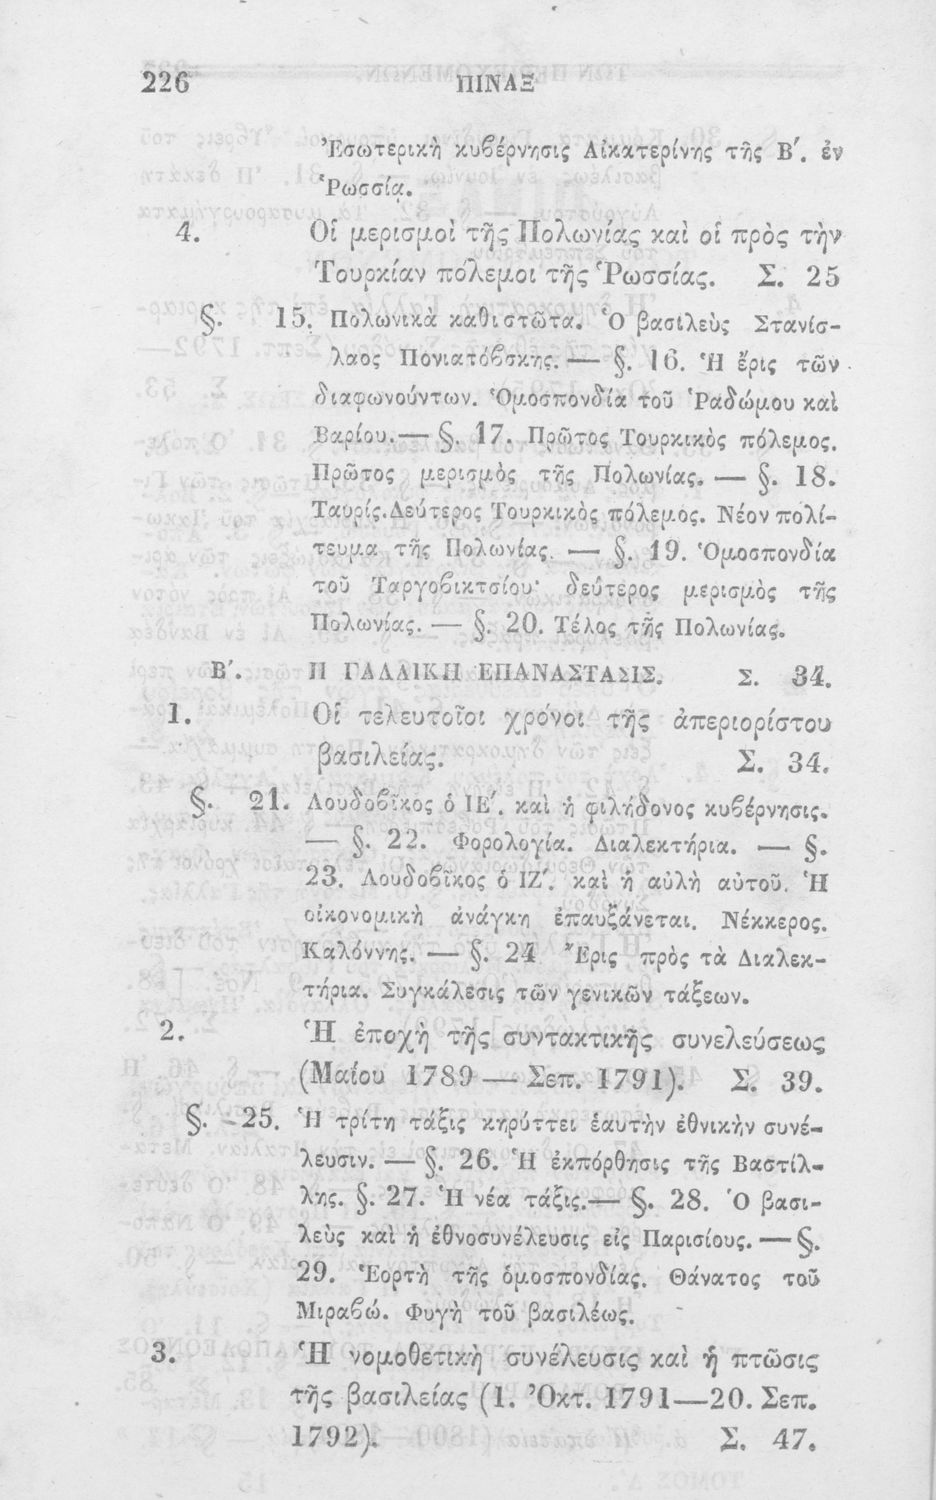 226 ΠΙΝΑΞ
Ἐσωτερικὴ κυβέρνησις Αἰκατερίνης τῆς Β΄. ἐν
Ῥωσσίᾳ.
4. Οἱ μερισμοὶ τῆς Πολωνίας καὶ οἱ πρὸς τὴν
Τουρκίαν πόλεμοι τῆς Ῥωσσίας. Σ. 25
§. 15. Πολωνικὰ καθιστῶτα. Ὁ βασιλεὺς Στανίσ-
λαος Πονιατόβσκης. — §. 16. Ἡ ἔρις τῶν
διαφωνούντων. Ὁμοσπονδία τοῦ Ῥαδώμου καὶ
Βαρίου. — §. 17. Πρῶτος Τουρκικὸς πόλεμος.
Πρῶτος μερισμὸς τῆς Πολωνίας. — §. 18.
Ταυρίς. Δεύτερος Τουρκικὸς πόλεμος. Νέον πολί-
τευμα τῆς Πολωνίας. — §. 19. Ὁμοσπονδία
τοῦ Ταργοβικτσίου· δεύτερος μερισμὸς τῆς
Πολωνίας. — §. 20. Τέλος τῆς Πολωνίας.
Β΄. Η ΓΑΛΛΙΚΗ ΕΠΑΝΑΣΤΑΣΙΣ. Σ. 34.
1. Οἱ τελευτοῖοι χρόνοι τῆς ἀπεριορίστου
βασιλείας. Σ. 34.
§. 21. Λουδοβῖκος ὁ ΙΕ΄. καὶ ἡ φιλήδονος κυβέρνησις.
— §. 22. Φορολογία. Διαλεκτήρια. — §.
23. Λουδοβῖκος ὁ ΙΖ΄. καὶ ἡ αὐλὴ αὐτοῦ. Ἡ
οἰκονομικὴ ἀνάγκη ἐπαυξάνεται. Νέκκερος.
Καλόννης. — §. 24 Ἔρις πρὸς τὰ Διαλεκ-
τήρια. Συγκάλεσις τῶν γενικῶν τάξεων.
2. Ἡ ἐποχὴ τῆς συντακτικῆς συνελεύσεως
(Μαΐου 1789 — Σεπ. 1791). Σ. 39.
§. 25. Ἡ τρίτη τάξις κηρύττει ἑαυτὴν ἐθνικὴν συνέ-
λευσιν. — §. 26. Ἡ ἐκπόρθησις τῆς Βαστίλ-
λης. §. 27. Ἡ νέα τάξις. — §. 28. Ὁ βασι-
λεὺς καὶ ἡ ἐθνοσυνέλευσις εἰς Παρισίους. — §.
29. Ἑορτὴ τῆς ὁμοσπονδίας. Θάνατος τοῦ
Μιραβώ. Φυγὴ τοῦ βασιλέως.
3. Ἡ νομοθετικὴ συνέλευσις καὶ ἡ πτῶσις
τῆς βασιλείας (1. Ὀκτ. 1791—20. Σεπ.
1792). Σ. 47.